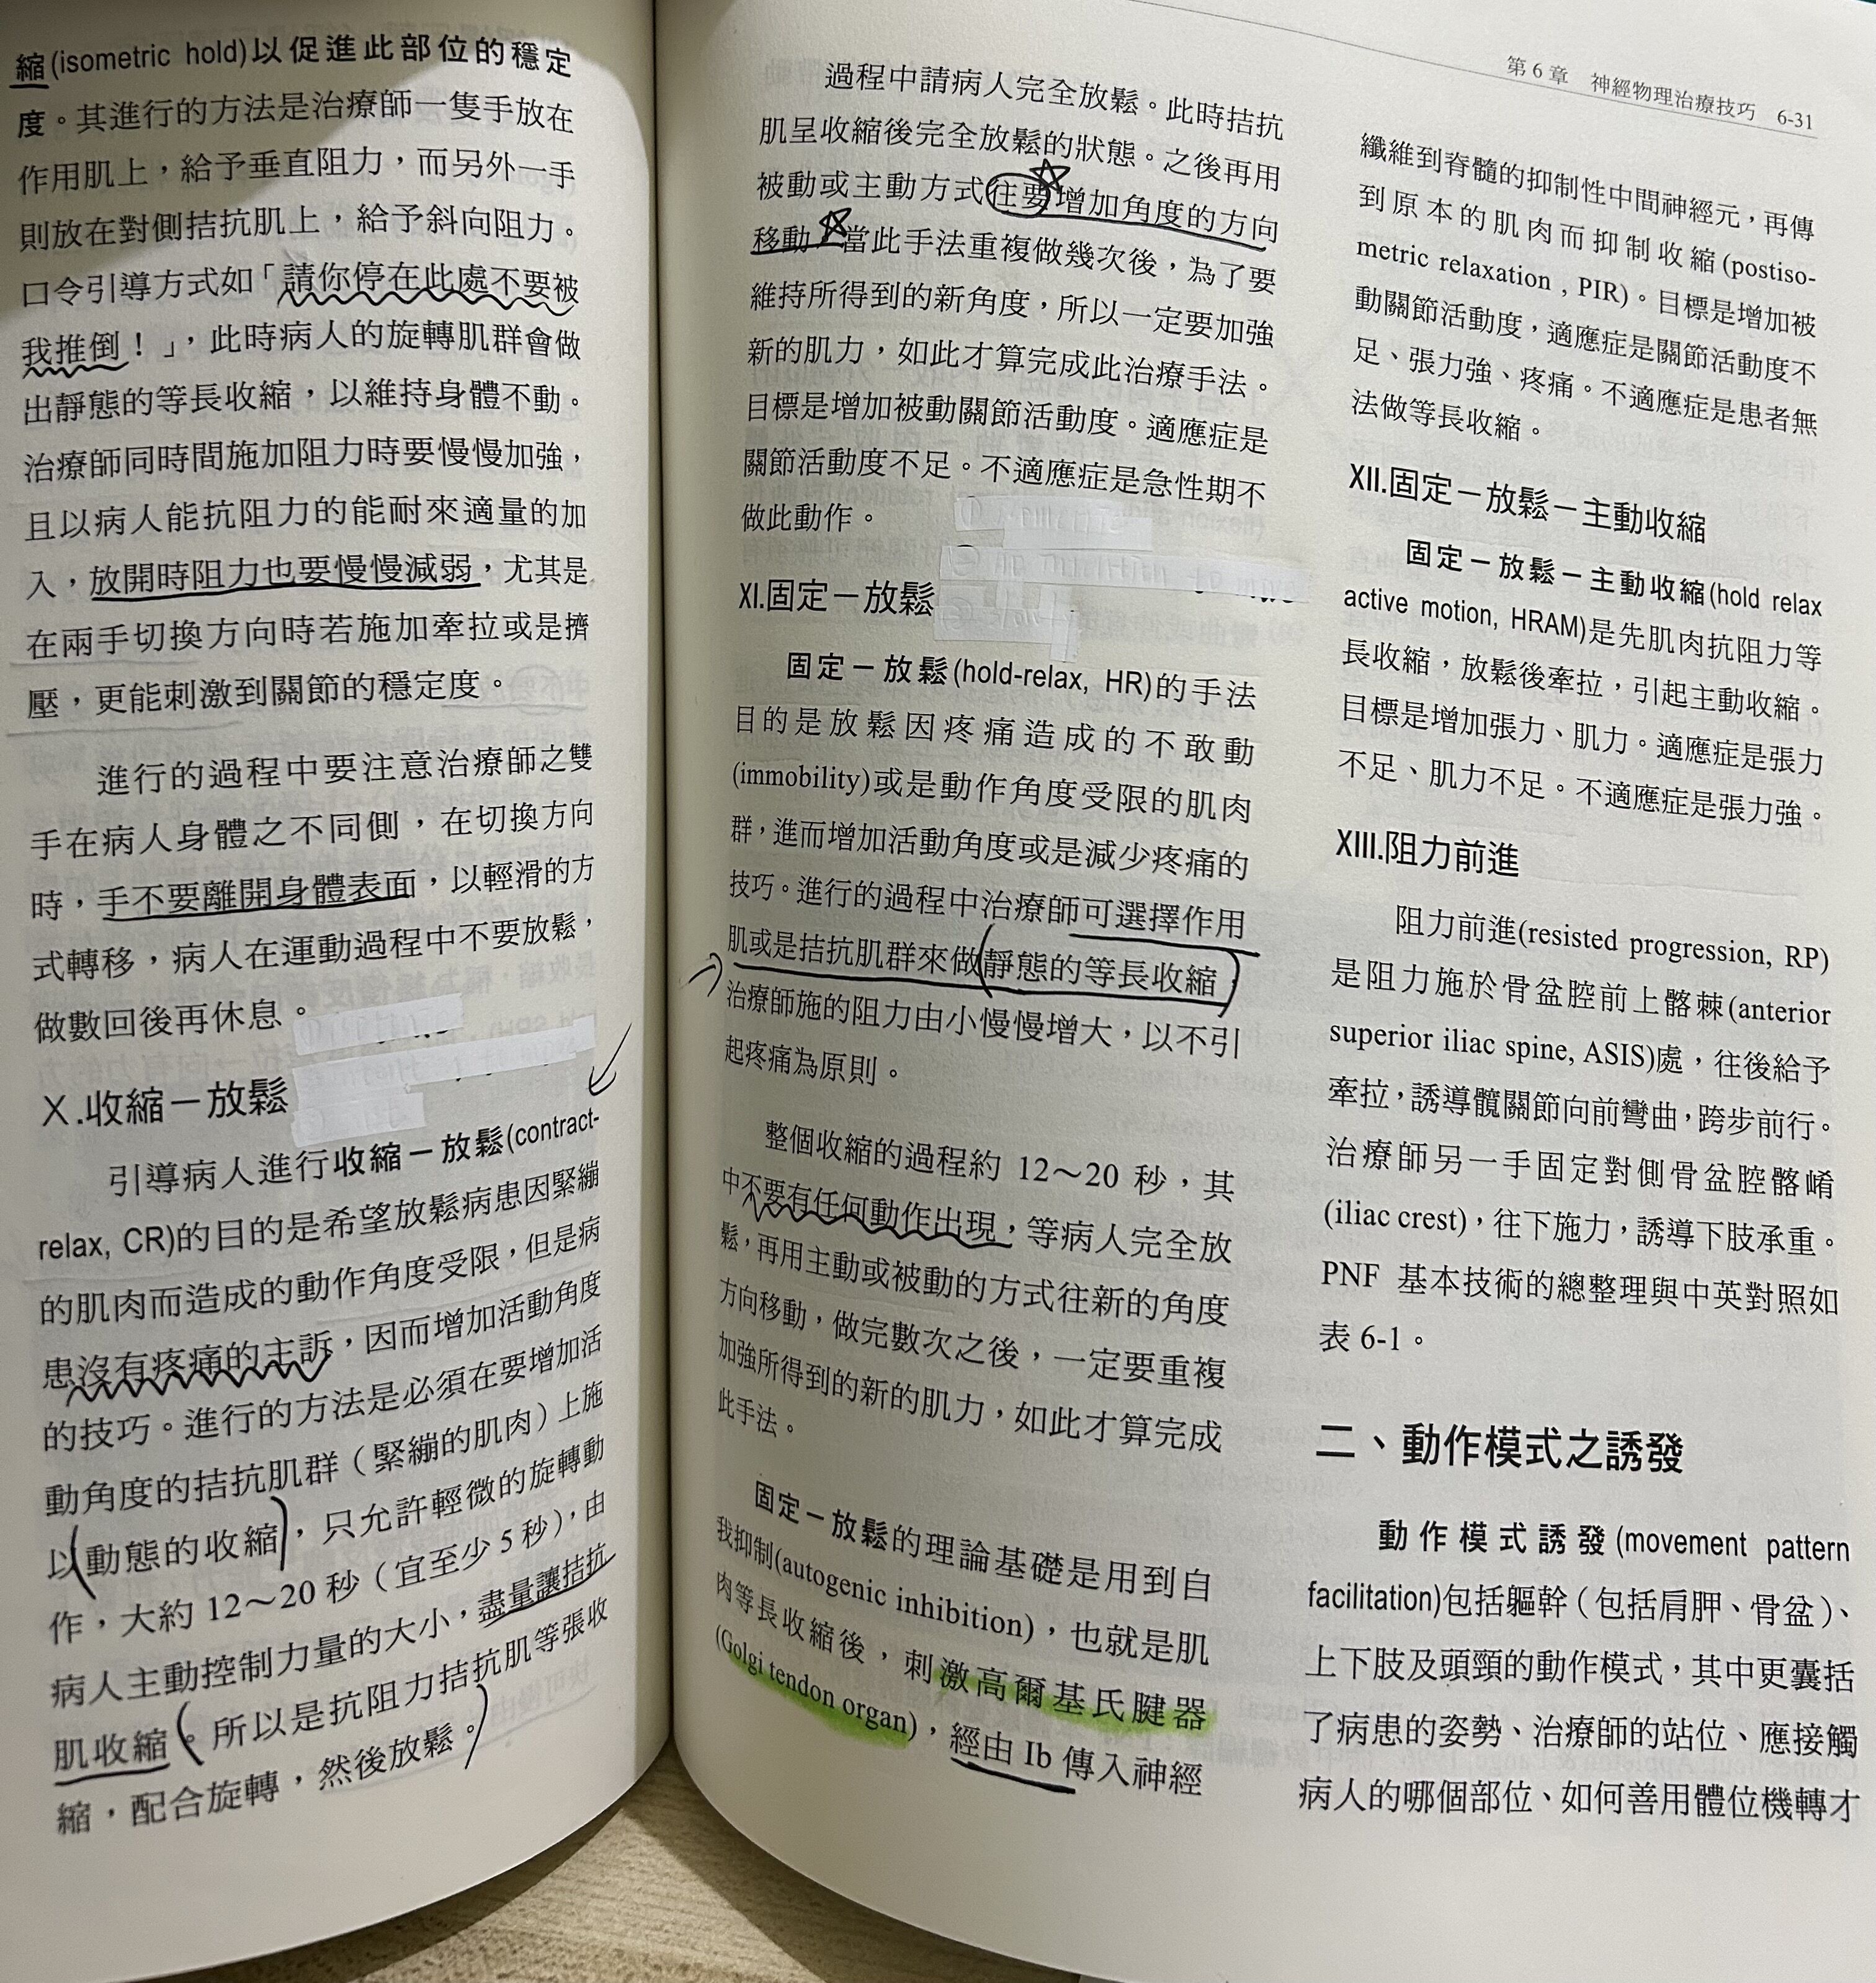 縮(isometric hold)以促進此部位的穩定
度。其進行的方法是治療師一隻手放在
作用肌上，給予垂直阻力，而另外一手
則放在對側拮抗肌上，給予斜向阻力。
口令引導方式如「請你停在此處不要被
我推倒！」，此時病人的旋轉肌群會做
出靜態的等長收縮，以維持身體不動。
治療師同時間施加阻力時要慢慢加強，
且以病人能抗阻力的能耐來適量的加
入，放開時阻力也要慢慢減弱，尤其是
在兩手切換方向時若施加牽拉或是擠
壓，更能刺激到關節的穩定度。
進行的過程中要注意治療師之雙
手在病人身體之不同側，在切換方向
時，手不要離開身體表面，以輕滑的方
式轉移，病人在運動過程中不要放鬆，
做數回後再休息。
X.收縮－放鬆
引導病人進行收縮－放鬆(contract-
relax, CR)的目的是希望放鬆病患因緊繃
的肌肉而造成的動作角度受限，但是病
患沒有疼痛的主訴，因而增加活動角度
的技巧。進行的方法是必須在要增加活
動角度的拮抗肌群（緊繃的肌肉）上施
以動態的收縮，只允許輕微的旋轉動
作，大約 12～20 秒（宜至少 5 秒），由
病人主動控制力量的大小，盡量讓拮抗
肌收縮。所以是抗阻力拮抗肌等張收
縮，配合旋轉，然後放鬆。
第 6 章 神經物理治療技巧 6-31
過程中請病人完全放鬆。此時拮抗
肌呈收縮後完全放鬆的狀態。之後再用
被動或主動方式往要增加角度的方向
移動。當此手法重複做幾次後，為了要
維持所得到的新角度，所以一定要加強
新的肌力，如此才算完成此治療手法。
目標是增加被動關節活動度。適應症是
關節活動度不足。不適應症是急性期不
做此動作。
XI.固定－放鬆
固定－放鬆(hold-relax, HR)的手法
目的是放鬆因疼痛造成的不敢動
(immobility)或是動作角度受限的肌肉
群，進而增加活動角度或是減少疼痛的
技巧。進行的過程中治療師可選擇作用
肌或是拮抗肌群來做靜態的等長收縮
治療師施的阻力由小慢慢增大，以不引
起疼痛為原則。
整個收縮的過程約 12～20 秒，其
中不要有任何動作出現，等病人完全放
鬆，再用主動或被動的方式往新的角度
方向移動，做完數次之後，一定要重複
加強所得到的新的肌力，如此才算完成
此手法。
固定－放鬆的理論基礎是用到自
我抑制(autogenic inhibition)，也就是肌
肉等長收縮後，刺激高爾基氏腱器
(Golgi tendon organ)，經由 Ib 傳入神經
纖維到脊髓的抑制性中間神經元，再傳
到原本的肌肉而抑制收縮(postiso-
metric relaxation , PIR)。目標是增加被
動關節活動度，適應症是關節活動度不
足、張力強、疼痛。不適應症是患者無
法做等長收縮。
XII.固定－放鬆－主動收縮
固定－放鬆－主動收縮(hold relax
active motion, HRAM)是先肌肉抗阻力等
長收縮，放鬆後牽拉，引起主動收縮。
目標是增加張力、肌力。適應症是張力
不足、肌力不足。不適應症是張力強。
XIII.阻力前進
阻力前進(resisted progression, RP)
是阻力施於骨盆腔前上髂棘(anterior
superior iliac spine, ASIS)處，往後給予
牽拉，誘導髖關節向前彎曲，跨步前行。
治療師另一手固定對側骨盆腔髂嵴
(iliac crest)，往下施力，誘導下肢承重。
PNF 基本技術的總整理與中英對照如
表 6-1。
二、動作模式之誘發
動作模式誘發(movement pattern
facilitation)包括軀幹（包括肩胛、骨盆）、
上下肢及頭頸的動作模式，其中更囊括
了病患的姿勢、治療師的站位、應接觸
病人的哪個部位、如何善用體位機轉才